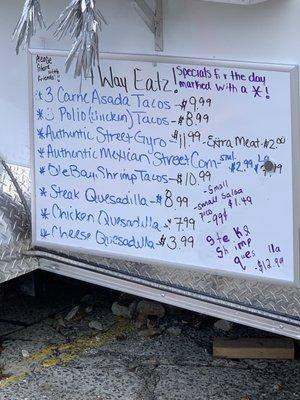 Please
Share
with
friends
4 Way Eatz!
Specials for the day
marked with a *!
3 Carne Asada Tacos - $9.99
* Pollo (chicken) Tacos - $8.99
* Authentic Street Gyro - $11.99 - Extra Meat - $2.00
* Authentic Mexican Street Corn - sml. $2.99
* Ole Bay Shrimp Tacos - $10.99
* Steak Quesadilla - $8.99
* Chicken Quesadilla - $7.99
* Cheese Quesadilla - $3.99
- Small
- small Salsa
99¢
- $1.49
Steak &
Shrimp
- $12.99